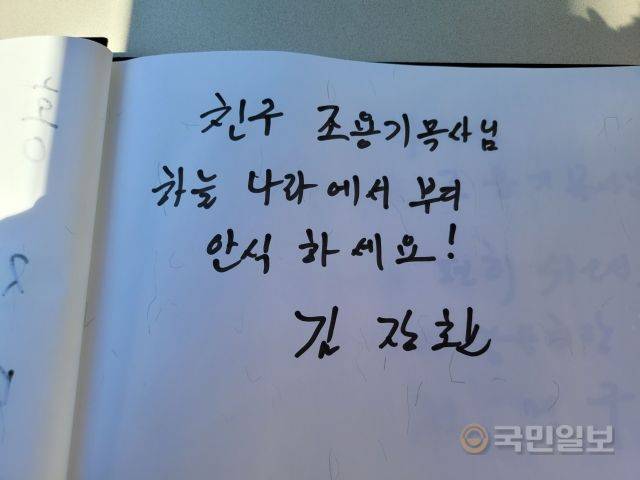 친구 조용기목사님
하늘 나라에서 부디
안식 하세요!
김 장환
국민일보